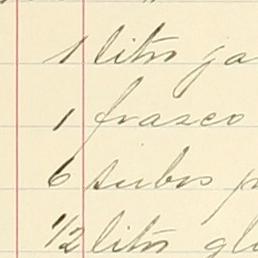 1 litro ja
1 frasco
6 tubos p
1/2 litro gl